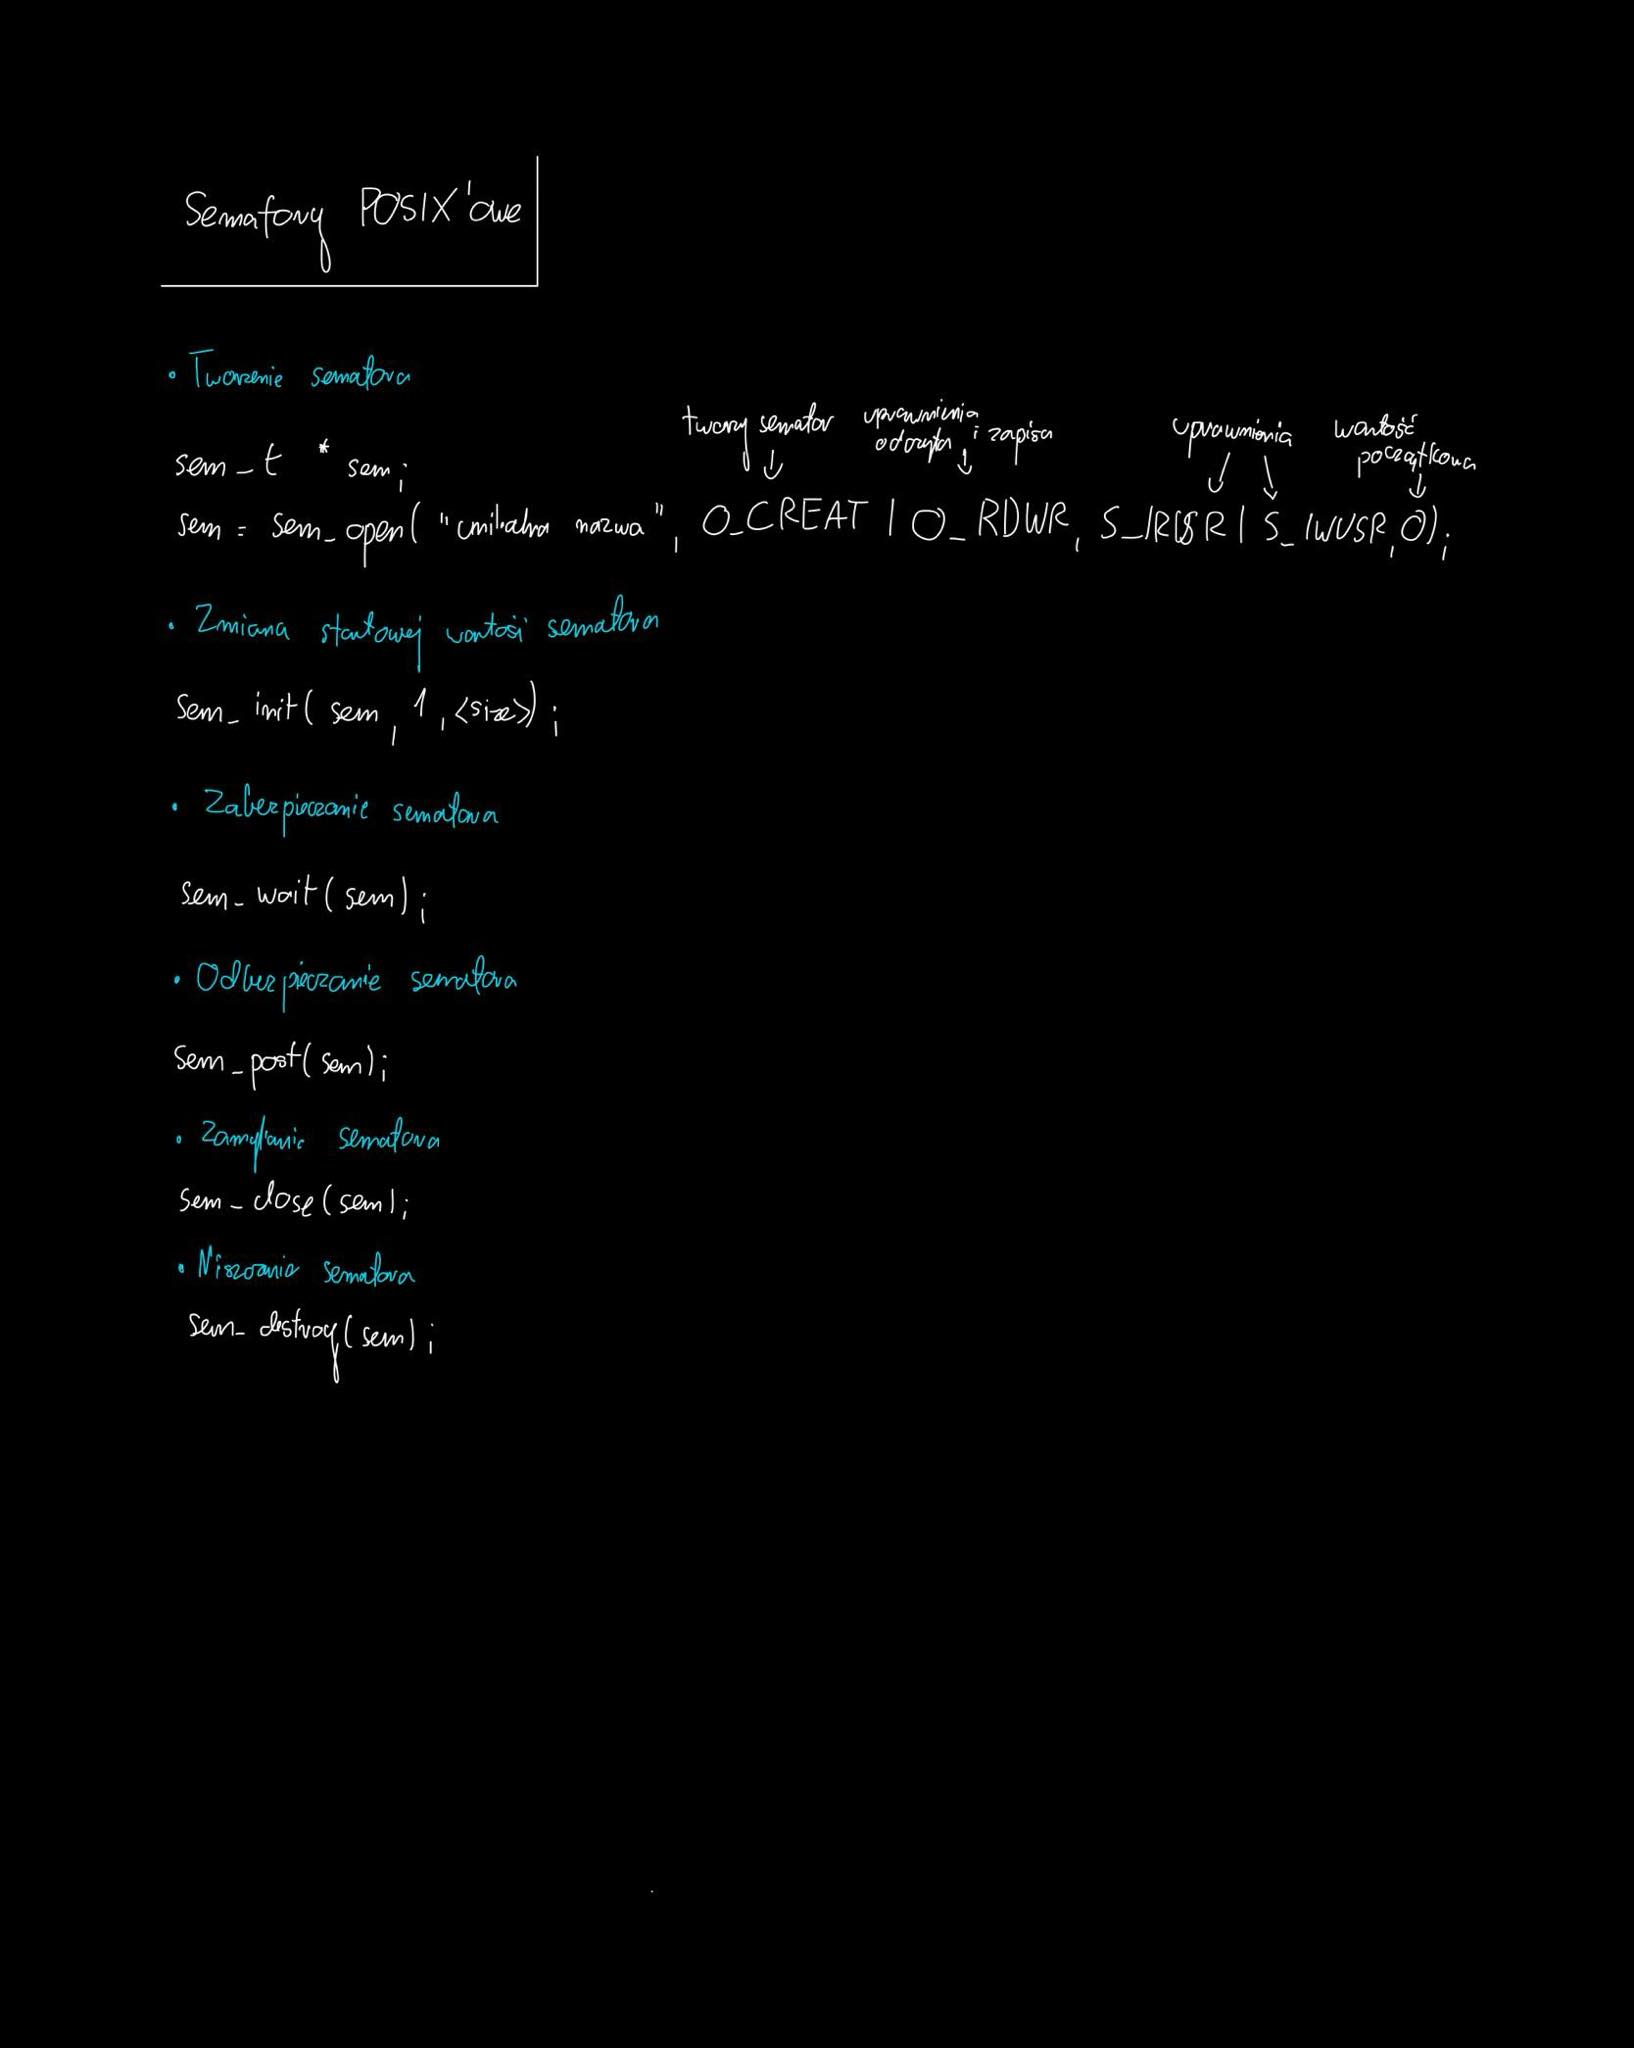 Semafory POSIX'owe
• Tworzenie semafora
tworzy semafor uprawnienia odczytu i zapisu uprawnienia wartość początkowa
sem_t * sem;
sem = sem_open( "unikalna nazwa", O_CREAT | O_RDWR, S_IRUSR | S_IWUSR, 0);
• Zmiana startowej wartości semafora
sem_init( sem, 1, <size>);
• Zabezpieczanie semafora
sem_wait(sem);
• Odbezpieczanie semafora
sem_post(sem);
• Zamykanie semafora
sem_close(sem);
• Niszczenie semafora
sem_destroy(sem);